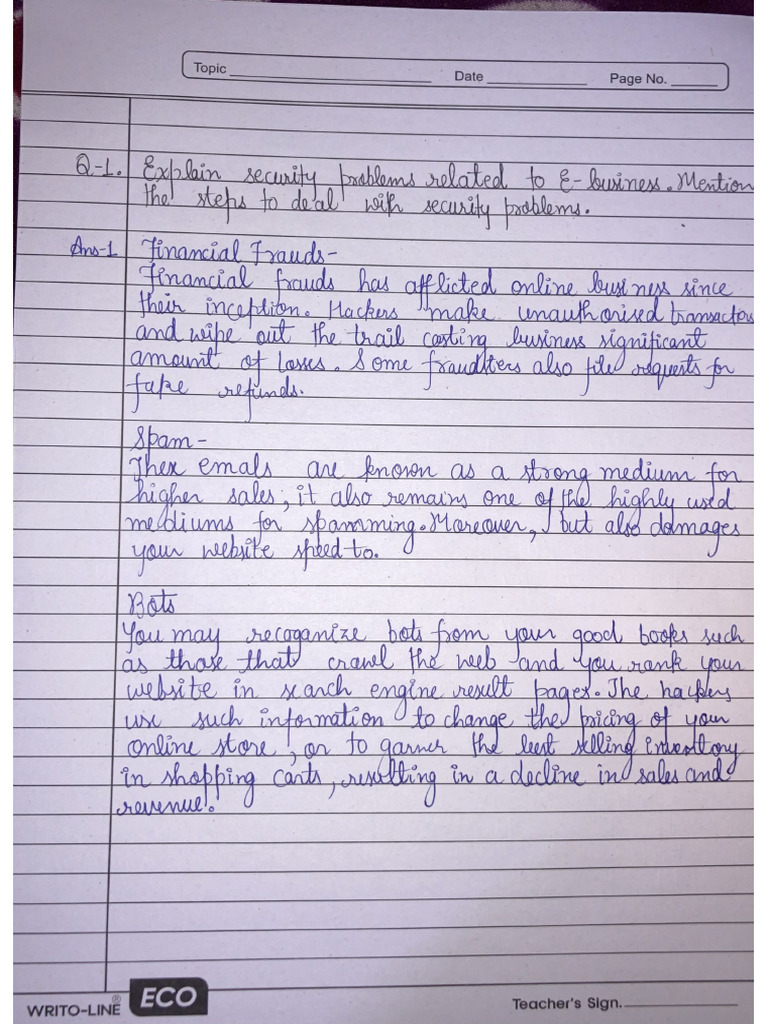 Topic
Date
Page No.
Q-1. Explain security problems related to E-business. Mention
the steps to deal with security problems.
Ans-1 Financial Frauds-
Financial frauds has afflicted online business since
their inception. Hackers make unauthorised transactons
and wipe out the trail costing business significant
amount of losses. Some fraudsters also file requests for
fake refunds.
Spam-
Thex emals are known as a strong medium for
higher sales, it also remains one of the highly used
mediums for spamming. Moreover, but also damages
your website speed to.
Bots
You may recoganize bots from your good books such
as those that crawel the web and you rank your
website in search engine result pages. The hackers
use such information to change the pricing of your
online store, or to garner the best selling inventory
in shopping carts, resulting in a decline in sales and
revenue.
WRITO-LINE® ECO
Teacher's Sign.